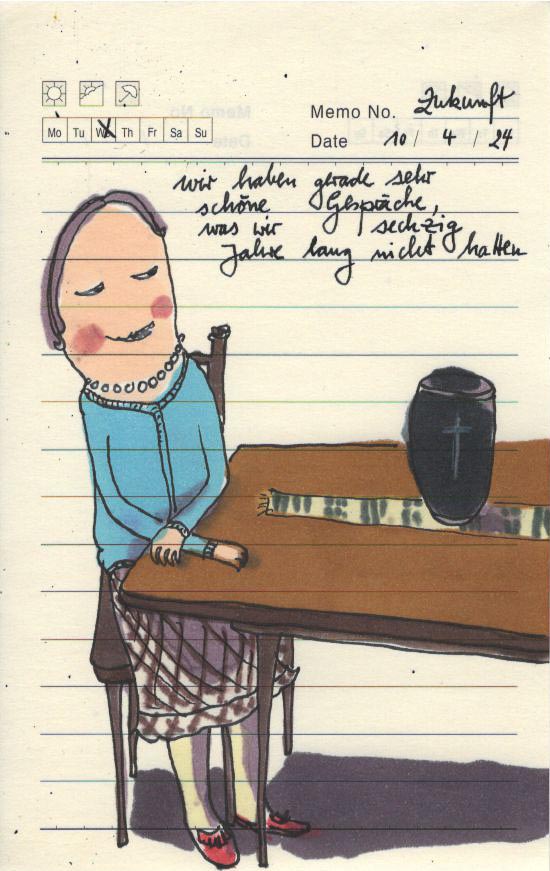 Memo No. Zukunft
Mo Tu We Th Fr Sa Su
Date 10 / 4 / 24
wir haben gerade sehr
schöne Gespräche,
was wir sechzig
Jahre lang nicht hatten